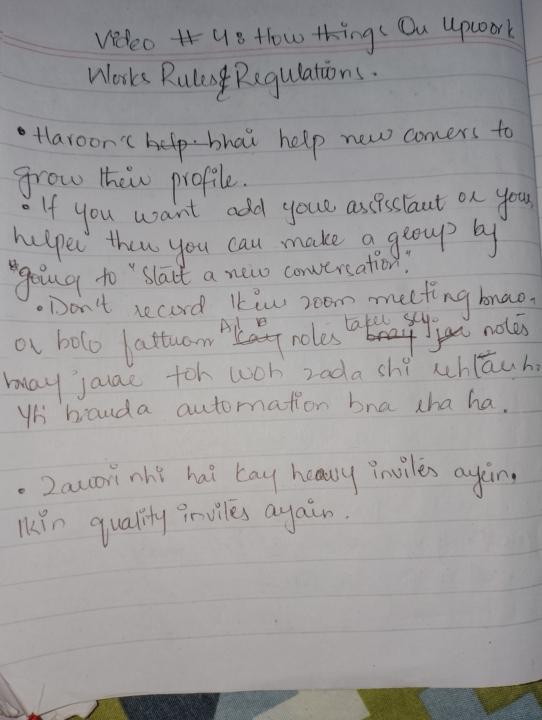 Video # 48 How things On Upwork
Works Rules & Regulations.
• Haroon's help bhai help new comers to
grow their profile.
• If you want add your assisstant or your
helper then you can make a group by
"going to "Start a new conversation."
• Don't record lkin zoom meeting bnao.
or bolo fattuom AI notes taker say notes
bnay jarae toh woh zada shi rehtau h.
Yh banda automation bna rha ha.
• Zarori nhi hai kay heavy invites ayin.
lkin quality invites ayain.